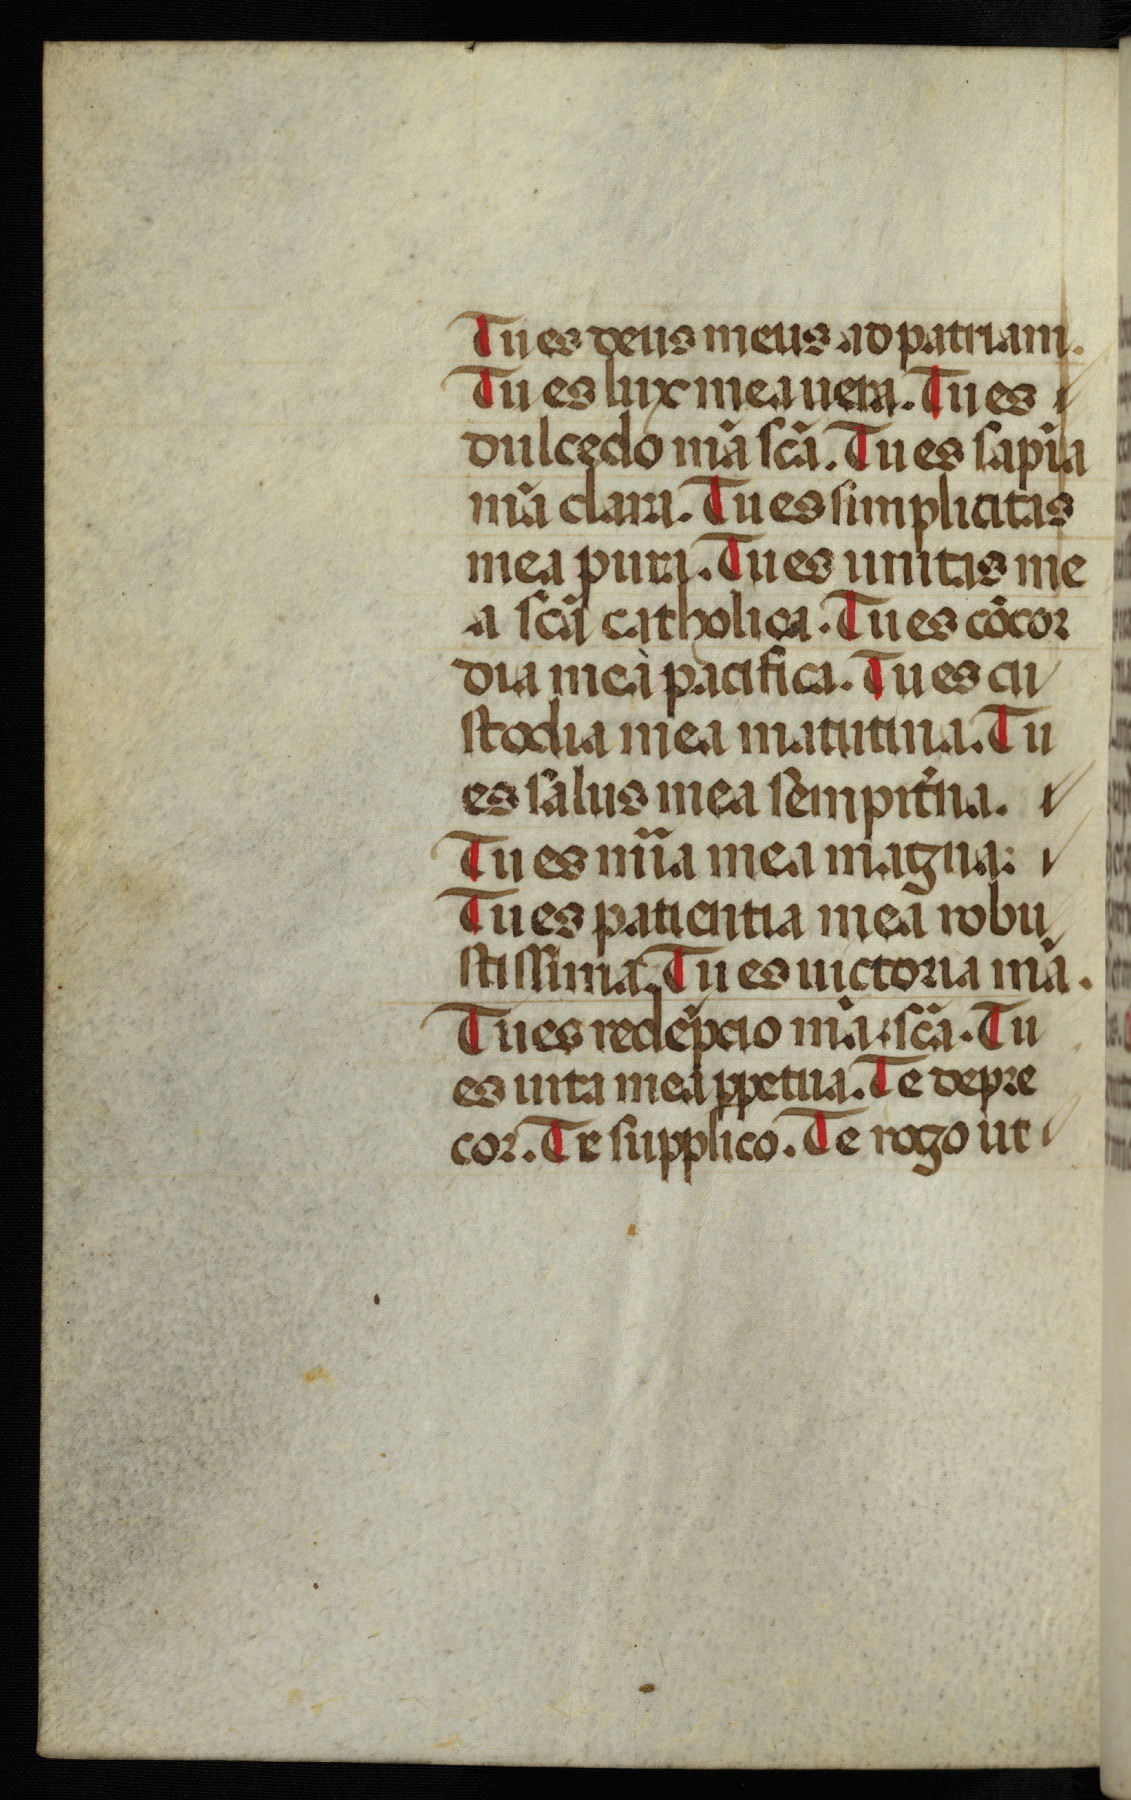 Tu es deus meus ad patriam.
Tu es lux mea uera. Tu es
dulcedo mẽa sc̃a. Tu es sapĩa
mẽa clara. Tu es simplicitas
mea pura. Tu es unitas me
a sc̃a catholica. Tu es cõcor
dia mea pacifica. Tu es cu
stodia mea matutina. Tu
es salus mea sempit̃na.
Tu es mĩa mea magna.
Tu es patientia mea robu
stissima. Tu es uictoria m̃a.
Tu es redẽpcio m̃a sc̃a. Tu
es uita mea ꝑpetua. Te depre
cor. Te supplico. Te rogo ut